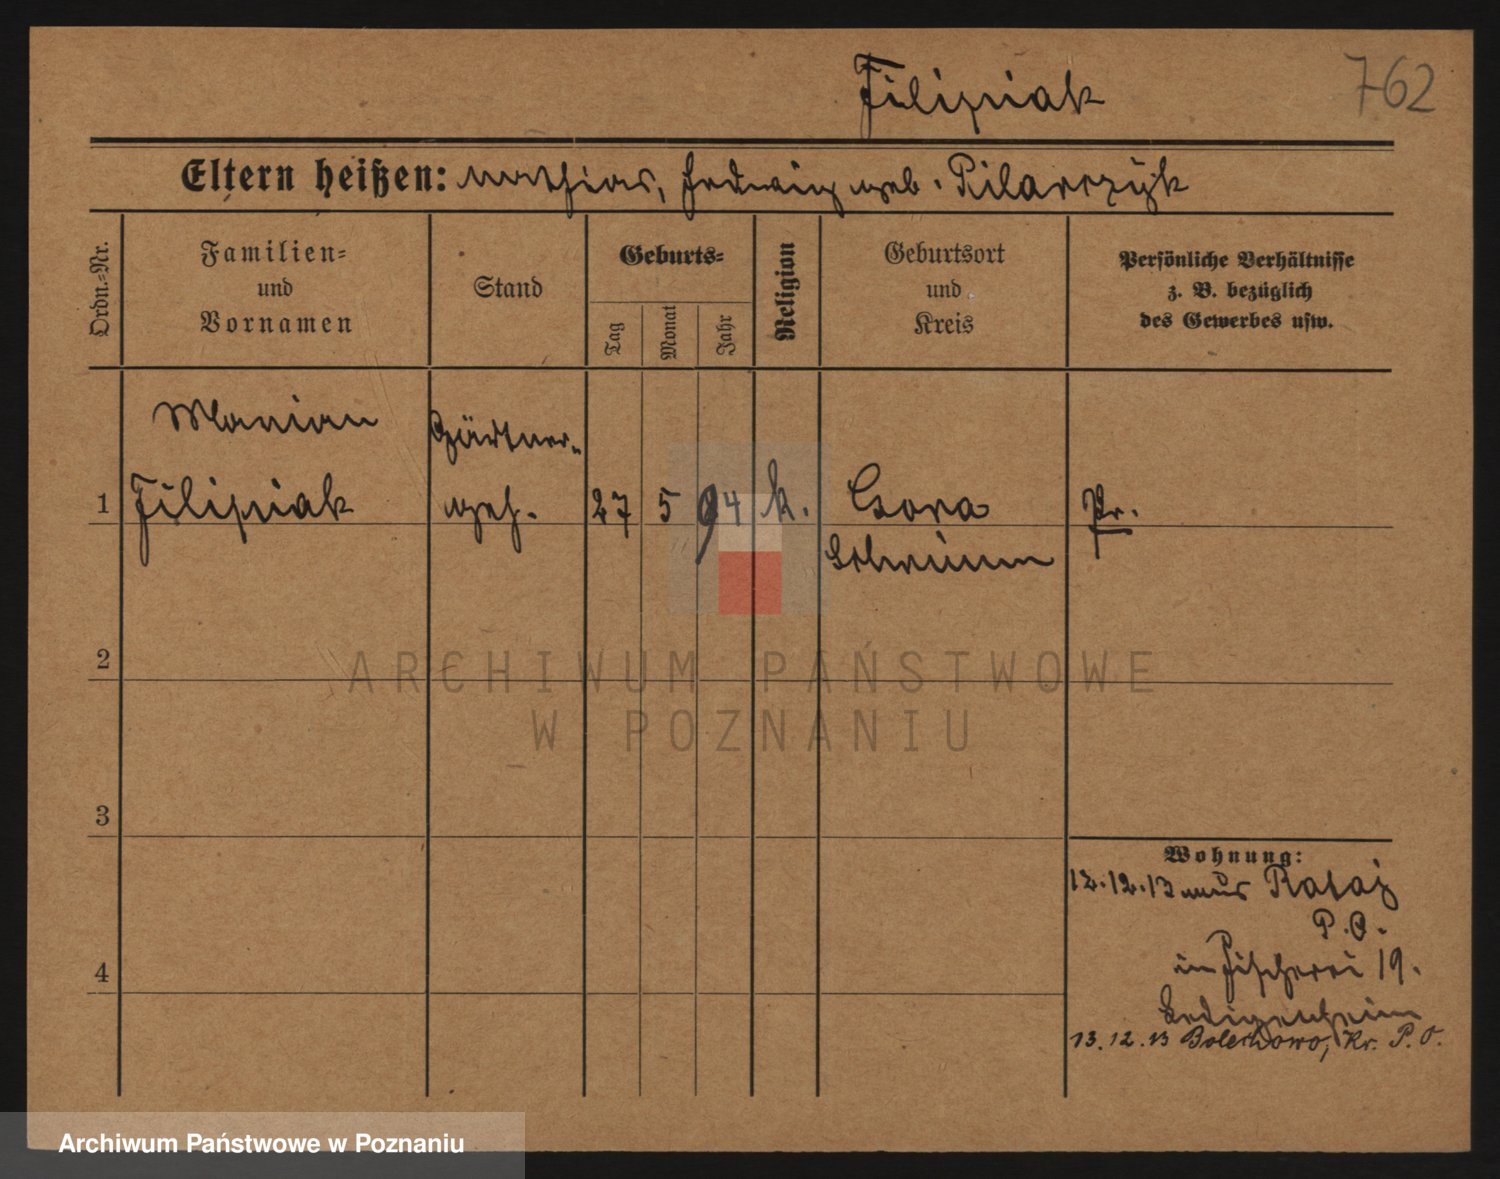 Filipiak
762
Eltern heißen: Mathias, Hedwig geb. Pilarczyk
Ordn.-Nr.
Familien-
und
Vornamen
Stand
Geburts-
Tag
Monat
Jahr
Religion
Geburtsort
und
Kreis
Persönliche Verhältnisse
z. B. bezüglich
des Gewerbes usw.
Marian
Gärtner-
1
Filipiak
geh.
27
5
94
k.
Gora
Pr.
Schrimm
2
ARCHIWUM PAŃSTWOWE
W POZNANIU
3
Wohnung:
12.12.13 aus Rataj
P.O.
in Fischerei 19.
Ledigenheim
13.12.13 Bolechowo, Kr. P.O.
4
Archiwum Państwowe w Poznaniu